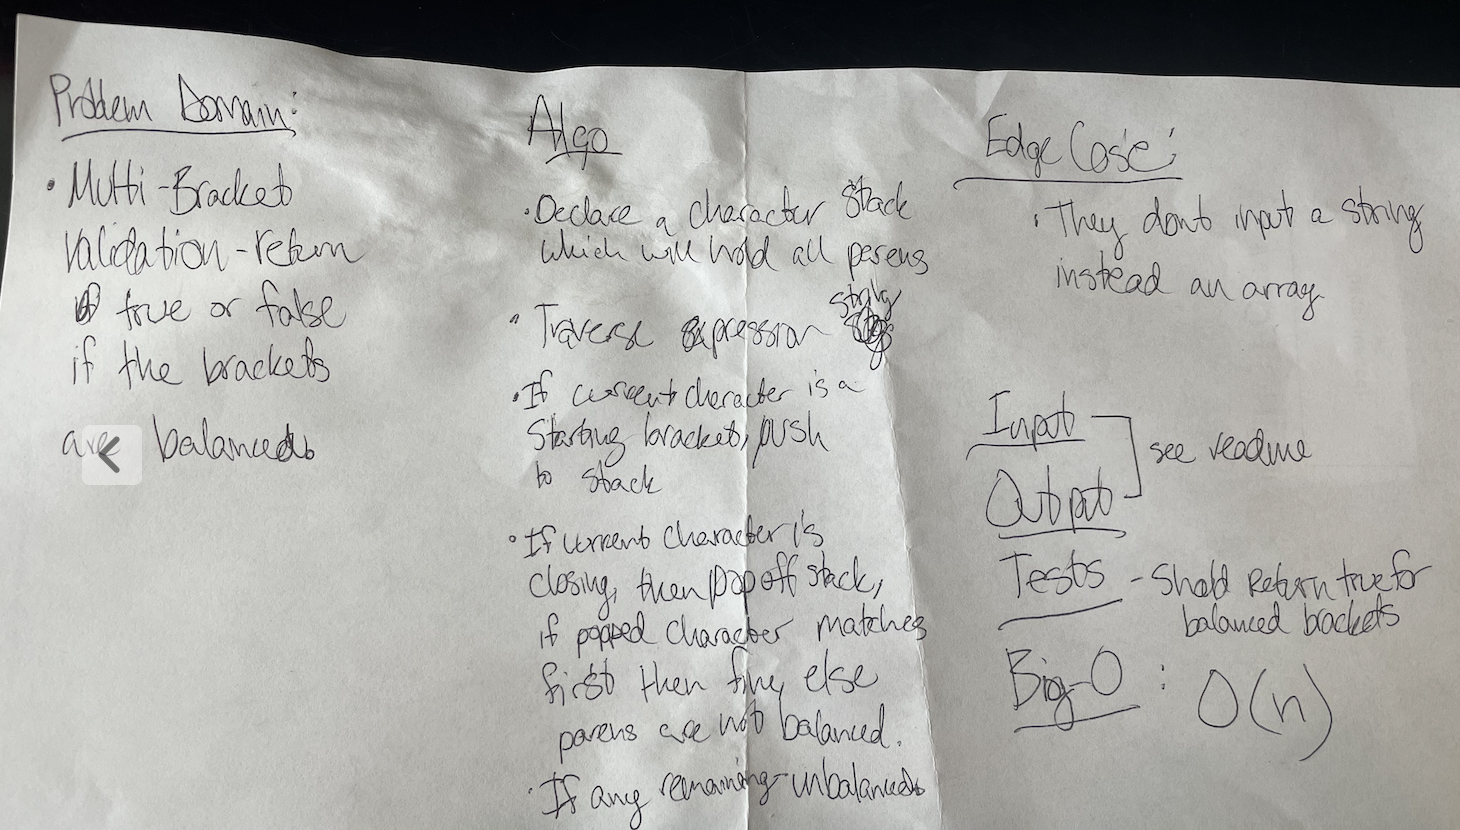 Problem Domain:
• Multi-Bracket
Validation - return
true or false
if the brackets
are balanced.
Algo
• Declare a character Stack
which will hold all parens
• Traverse expression string
• If current character is a
starting bracket, push
to stack
• If current character is
closing, then pop off stack,
if popped character matches
first then fine, else
parens are not balanced.
• If any remaining - unbalanced.
Edge Case:
• They dont input a string
instead an array
Input
see readme
Output
Tests - Should return true for
balanced brackets
Big-O : O(n)